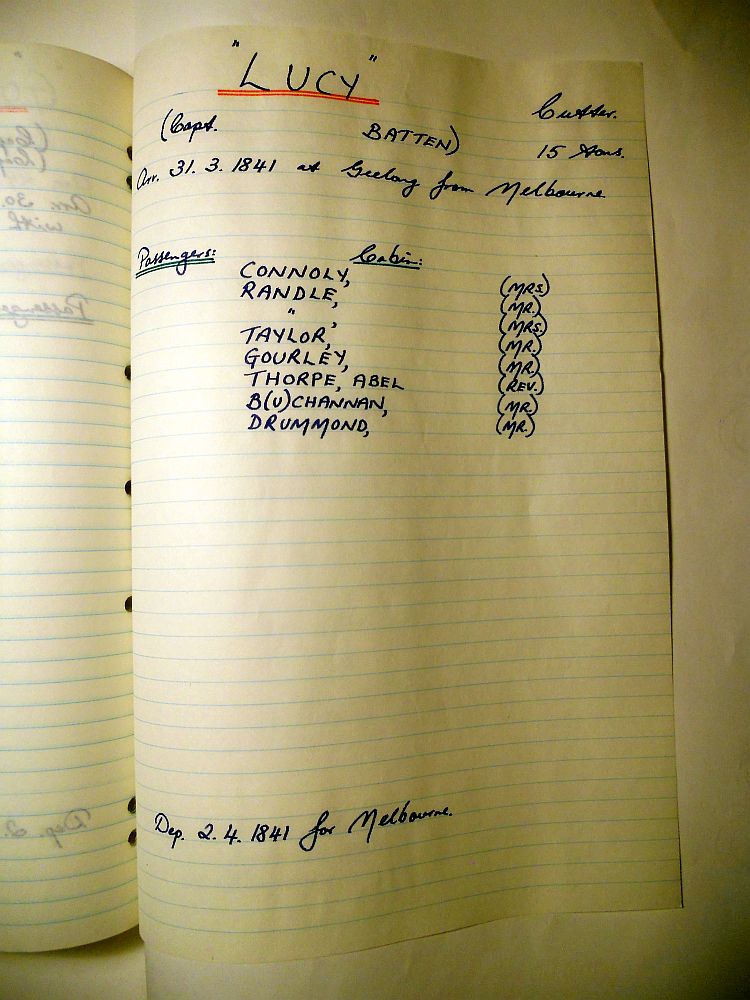 "LUCY"
Cutter.
(Capt. BATTEN) 15 tons.
Arr. 31. 3. 1841 at Geelong from Melbourne
Passengers: Cabin:
CONNOLY, (MRS)
RANDLE, (MR.)
" (MRS.)
TAYLOR, (MR.)
GOURLEY, (MR.)
THORPE, ABEL (REV.)
B(U)CHANNAN, (MR.)
DRUMMOND, (MR.)
Dep. 2. 4. 1841 for Melbourne.